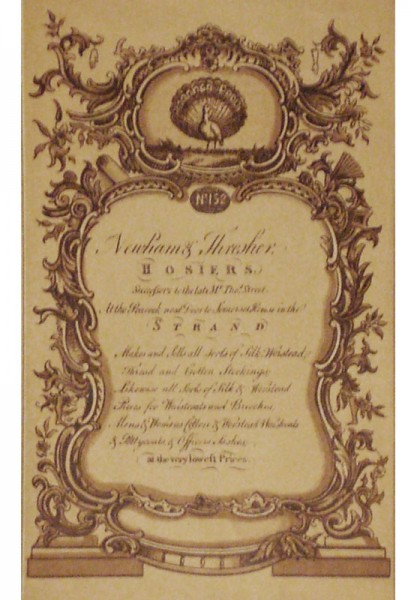 No. 152
Newham & Thresher,
HOSIERS,
Successors to the late Mr. Thos. Street
At the Peacock next Door to Somerset House in the
STRAND
Makes and Sells all Sorts of Silk, Worstead,
Thread and Cotton Stockings,
Likewise all Sorts of Silk & Worstead
Pieces for Waistcoats and Breeches.
Mens & Womens Cotton & Worstead
& Officers Sashes
at the very lowest Prices.